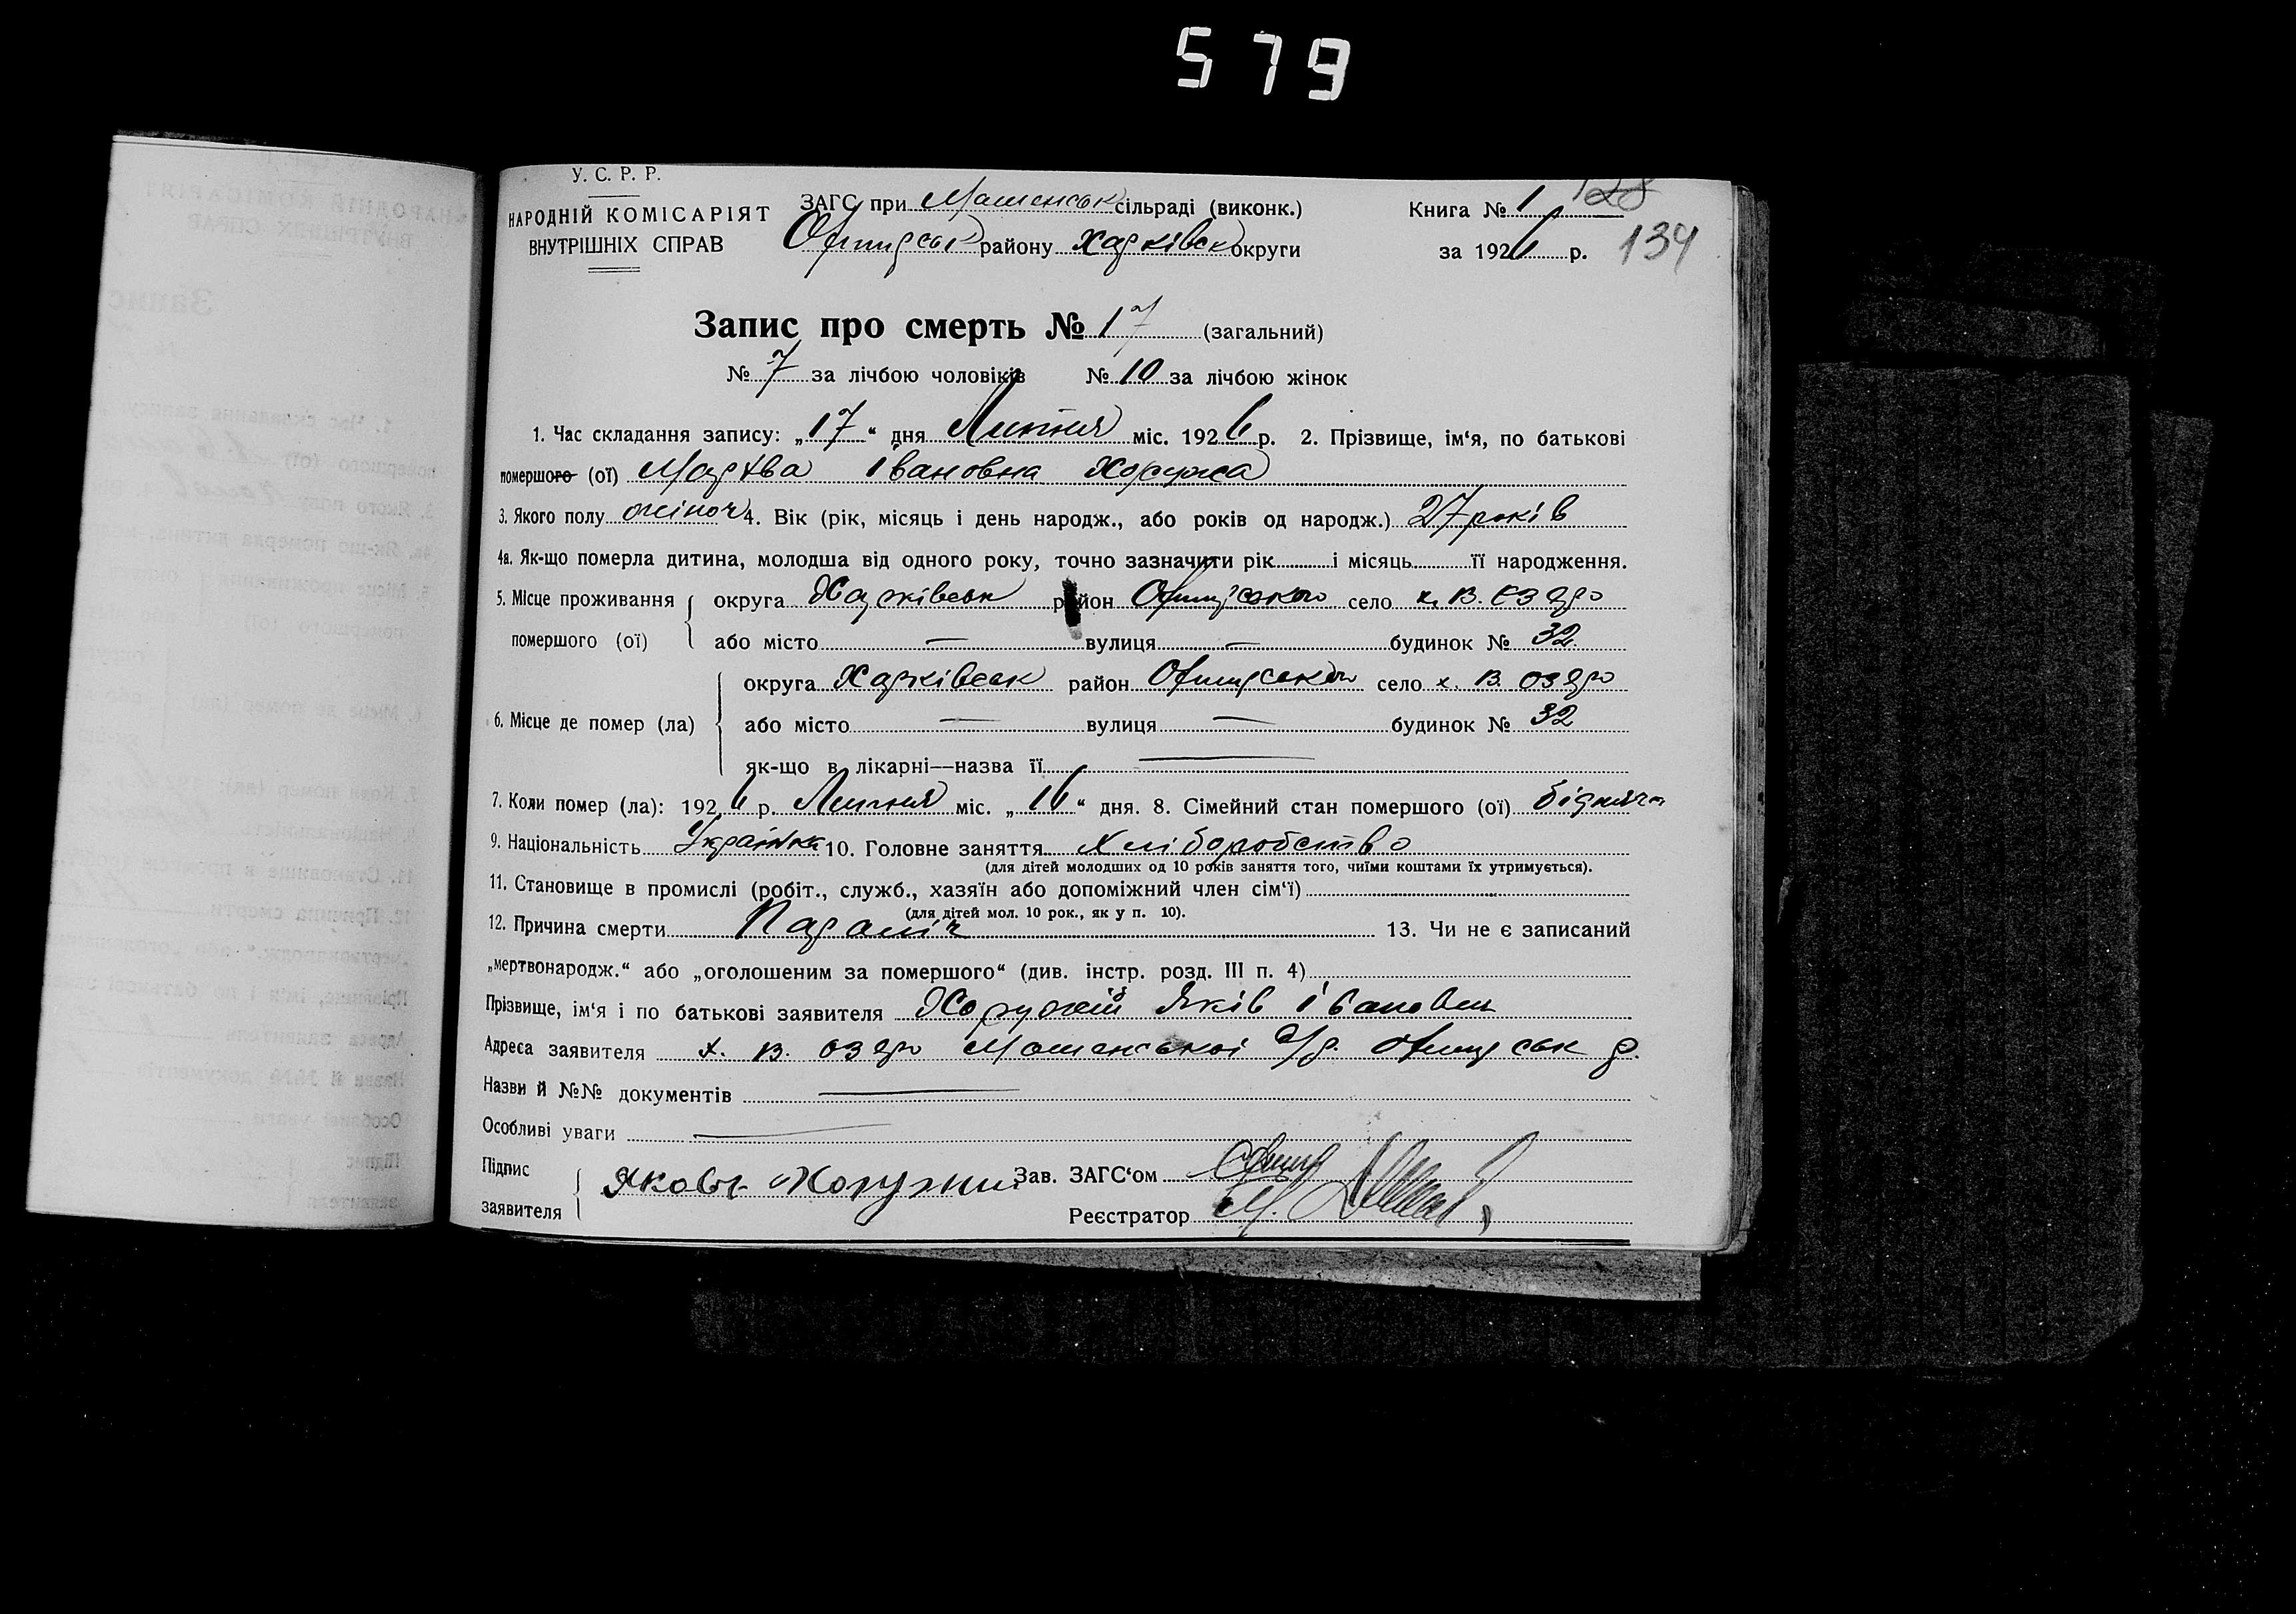 579
У. С. Р. Р.
НАРОДНІЙ КОМІСАРІЯТ
ВНУТРІШНІХ СПРАВ
ЗАГС при Мошенськ сільраді (виконк.)
району Харківськ округи
Книга № 1
128
за 1926 р. 134
Запис про смерть № 17 (загальний)
№ 7 за лічбою чоловіків № 10 за лічбою жінок
1. Час складання запису: „17“ дня Липня міс. 1926 р. 2. Прізвище, ім‘я, по батькові
помершого (ої) Мартва Івановна Хоружа
3. Якого полу жіноч 4. Вік (рік, місяць і день народж., або років од народж.) 27 років
4а. Як-що померла дитина, молодша від одного року, точно зазначити рік і місяць її народження.
5. Місце проживання помершого (ої) округа Харківськ район село х. В. Озеро
або місто — вулиця — будинок № 32
6. Місце де помер (ла) округа Харківськ район село х. В. Озеро
або місто — вулиця — будинок № 32
як-що в лікарні—назва її —
7. Коли помер (ла): 1926 р. Липня міс. „16“ дня. 8. Сімейний стан помершого (ої)
9. Національність Українка 10. Головне заняття Хліборобство
(для дітей молодших од 10 років заняття того, чиїми коштами їх утримується).
11. Становище в промислі (робіт., служб., хазяїн або допоміжний член сім‘ї)
(для дітей мол. 10 рок., як у п. 10).
12. Причина смерти Параліч 13. Чи не є записаний
„мертвонародж.“ або „оголошеним за помершого“ (див. інстр. розд. III п. 4)
Прізвище, ім‘я і по батькові заявителя Хоружій Яків Іванович
Адреса заявителя х. В. Озеро Мошенської с/р. р.
Назви й №№ документів —
Особливі уваги —
Підпис заявителя Яковъ Хоружий Зав. ЗАГС‘ом
Реєстратор